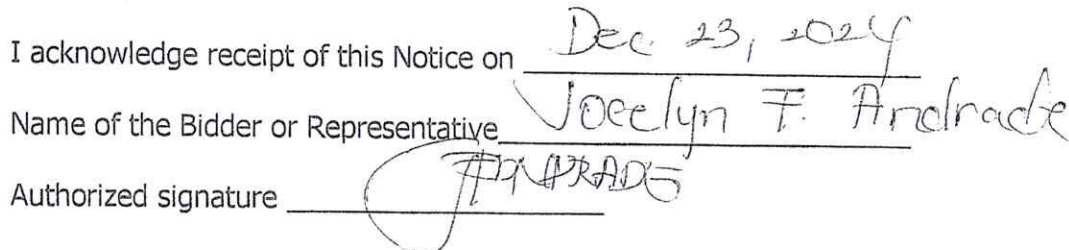 I acknowledge receipt of this Notice on Dec. 23, 2024
Name of the Bidder or Representative Jocelyn F. Andrade
Authorized signature